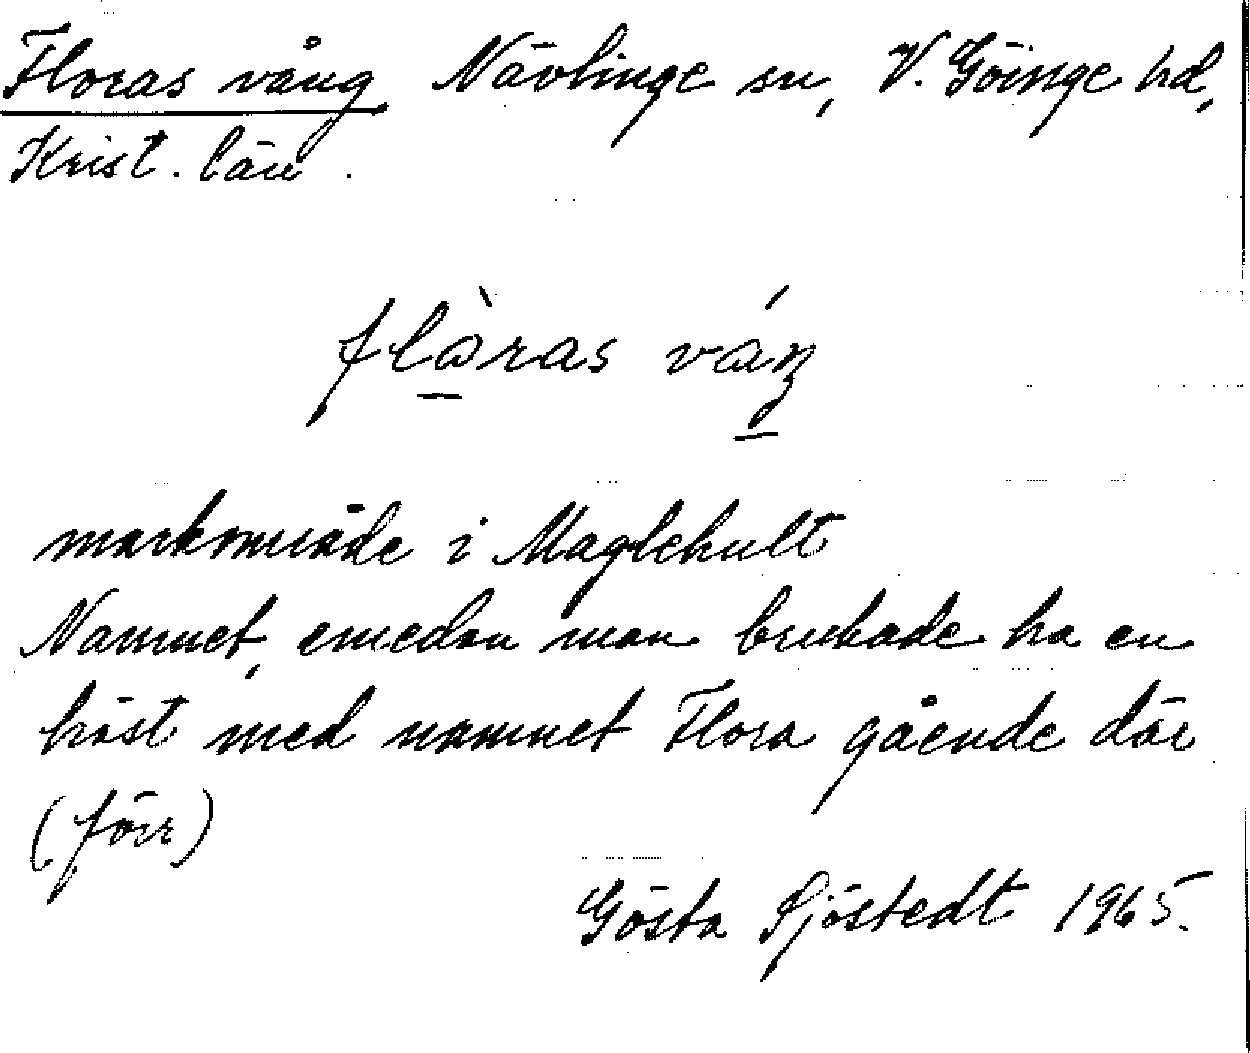 Floras vång Nävlinge sn, V. Göinge hd,
Krist. län.
flàras váŋ
markområde i Maglehult
Namnet, emedan man brukade ha en
häst med namnet Flora gående där
(förr)
Gösta Sjöstedt 1965.